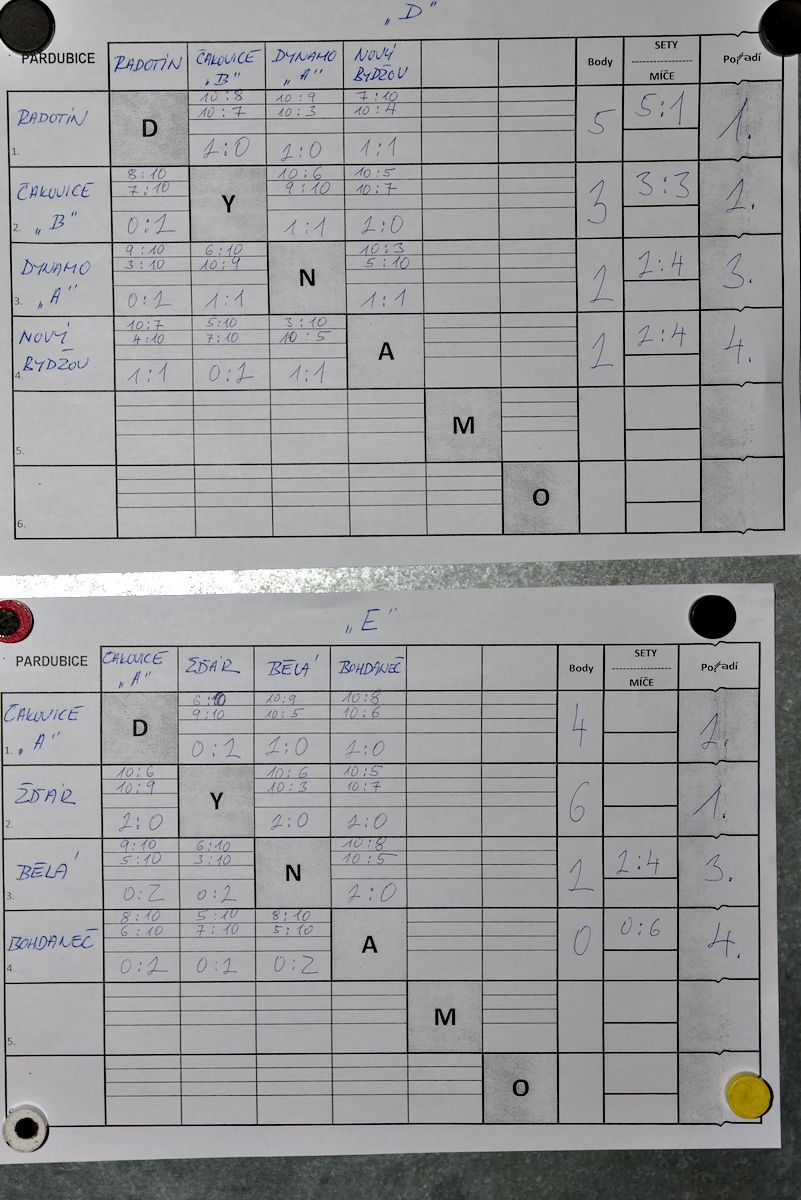 „D“
PARDUBICE RADOTÍN ČAKOVICE „B“ DYNAMO „A“ NOVÝ BYDŽOV Body SETY MÍČE Pořadí
RADOTÍN D 10:8 10:9 7:10 5 5:1 1.
10:7 10:3 10:4
1. 2:0 2:0 1:1
ČAKOVICE 8:10 Y 10:6 10:5 3 3:3 2.
„B“ 7:10 9:10 10:7
2. 0:2 1:1 2:0
DYNAMO 9:10 6:10 N 10:3 2 2:4 3.
„A“ 3:10 10:9 5:10
3. 0:2 1:1 1:1
NOVÝ 10:7 5:10 3:10 A 2 2:4 4.
BYDŽOV 4:10 7:10 10:5
4. 1:1 0:2 1:1
5. M
6. O
„E“
PARDUBICE ČAKOVICE „A“ ŽĎÁR BĚLÁ BOHDANEČ Body SETY MÍČE Pořadí
ČAKOVICE D 6:10 10:9 10:8 4 2.
„A“ 9:10 10:5 10:6
1. 0:2 2:0 2:0
ŽĎÁR 10:6 Y 10:6 10:5 6 1.
10:9 10:3 10:7
2. 2:0 2:0 2:0
BĚLÁ 9:10 6:10 N 10:8 2 2:4 3.
5:10 3:10 10:5
3. 0:2 0:2 2:0
BOHDANEČ 8:10 5:10 8:10 A 0 0:6 4.
6:10 7:10 5:10
4. 0:2 0:2 0:2
5. M
O